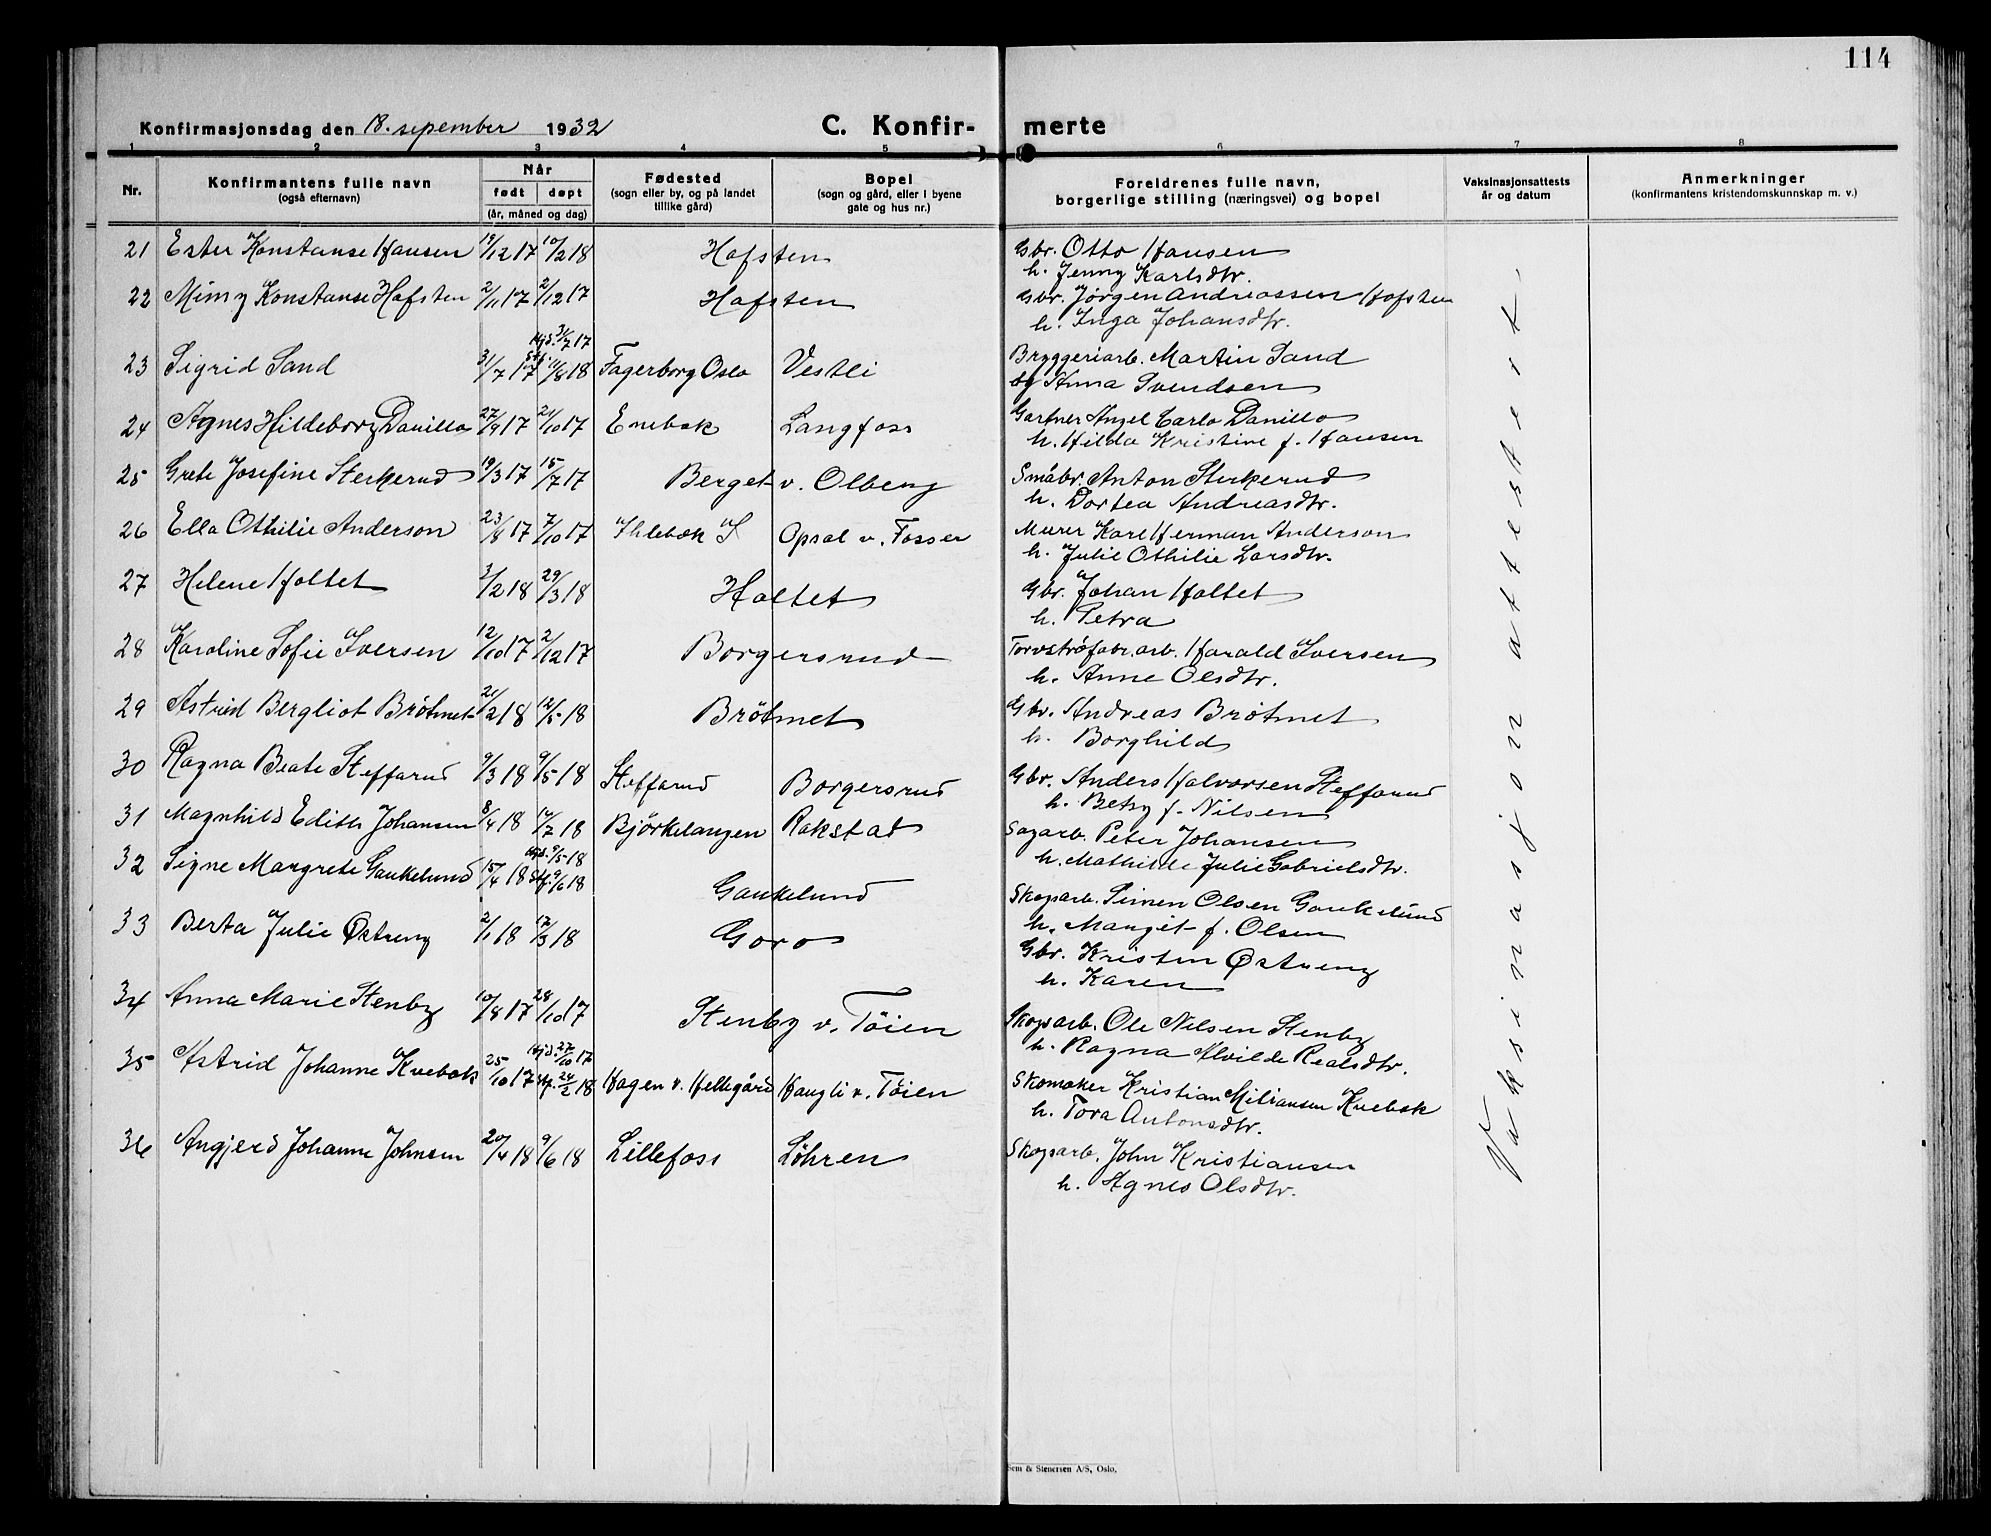 114
Konfirmasjonsdag den 18. sepember 1932 C. Konfir- merte
1 2 3 4 5 6 7 8
Nr. Konfirmantens fulle navn (også efternavn) Når født døpt (år, måned og dag) Fødested (sogn eller by, og på landet tillike gård) Bopel (sogn og gård, eller i byene gate og hus nr.) Foreldrenes fulle navn, borgerlige stilling (næringsvei) og bopel Vaksinasjonsattests år og datum Anmerkninger (konfirmantens kristendomskunnskap m. v.)
21 Ester Konstanse Hansen 19/12 17 10/2 18 Hofsten Gbr. Otto Hansen
h. Jenny Karlsdtr.
22 Mimy Konstanse Hofsten 2/11 17 2/12 17 Hofsten Gbr. Jørgen Andreassen Hofsten
h. Inga Johansdtr.
hjd. 31/7 17
23 Sigrid Sand 31/7 17 11/8 18 Fagerborg Oslo Vestli Bryggeriarb. Martin Sand
og Anna Svendsen
24 Agnes Hildeborg Danillo 27/9 17 21/10 17 Enebak Langfoss Gartner Angel Carlo Danillo
h. Hilda Kristine f. Hansen
25 Grete Josefine Sterkerud 19/3 17 15/7 17 Berget v. Olberg Småbr. Anton Sterkerud
h. Dortea Andreasdtr.
26 Ella Othilie Anderson 23/8 17 7/10 17 Ihlebæk S Opsal v. Fosser Murer Karl Herman Anderson
h. Julie Othilie Larsdtr.
27 Helene Holtet 3/2 18 29/3 18 Holtet Gbr. Johan Holtet
h. Petra
28 Karoline Sofie Iversen 12/10 17 2/12 17 Borgersrud Torvströfabr.arb. Harald Iversen
h. Anne Olsdtr.
29 Astrid Bergliot Brötmet 21/2 18 12/5 18 Brötmet Gbr. Andreas Brötmet
h. Borghild
30 Ragna Beate Steffarud 9/3 18 9/5 18 Steffarud Borgersrud Gbr. Anders Halvorsen Steffarud
h. Betsy f. Nilsen
31 Magnhild Edith Johansen 8/4 18 14/7 18 Björkelangen Rakstad Sagarb. Peter Johansen
h. Mathilde Julie Gabrielsdtr.
hjd. 9/5 18
32 Signe Margrete Gaukelund 15/4 18 stf. 9/6 18 Gaukelund Skogsarb. Simen Olsen Gaukelund
h. Margit f. Olsen
33 Berta Julie Østreng 2/1 18 17/3 18 Goro Gbr. Kristin Østreng
h. Karen
34 Anna Marie Stenby 10/8 17 28/10 17 Stenby v. Töien Skogsarb. Ole Nilsen Stenby
h. Ragna Alvilde Realsdtr.
hjd. 27/10 17
35 Astrid Johanne Kvebæk 25/10 17 stf. 24/2 18 Hagen v. Hellegård Haugli v. Töien Skomaker Kristian Miliansen Kvebæk
h. Tora Antonsdtr.
36 Angjerd Johanne Johnsen 20/4 18 9/6 18 Lillefoss Löhren Skogsarb. John Kristiansen
h. Agnes Olsdtr.
Vaksinasjon attestert
Sem & Stenersen A/S, Oslo.